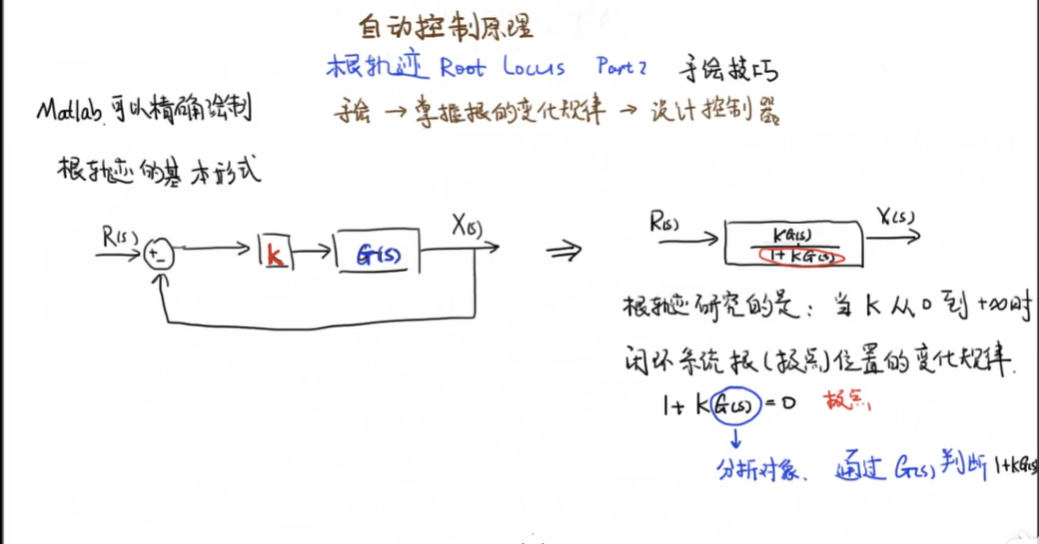 自动控制原理
根轨迹 Root Locus Part2 手绘技巧
Matlab 可以精确绘制
手绘 → 掌握根的变化规律 → 设计控制器
根轨迹的基本形式
R(s) + - K G(s) X(s)
⇒
R(s) KG(s) / 1+KG(s) X(s)
根轨迹研究的是: 当 K 从 0 到 +∞时
闭环系统根(极点)位置的变化规律.
1+KG(s)=0 极点,
↓
分析对象. 通过 G(s) 判断 1+KG(s)